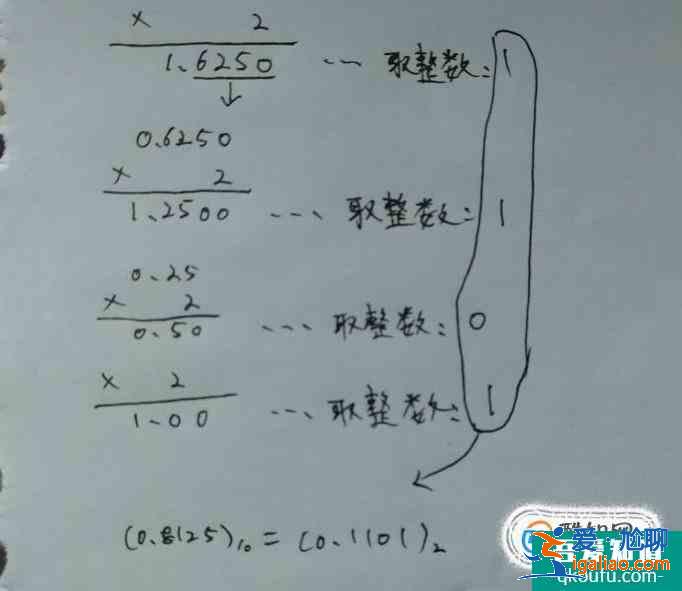 × 2
1.6250 ... 取整数: 1
0.6250
× 2
1.2500 ... 取整数: 1
0.25
× 2
0.50 ... 取整数: 0
× 2
1.00 ... 取整数: 1
(0.8125)₁₀ = (0.1101)₂
爱尬聊
igaliao.com